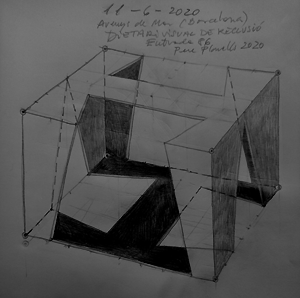 11-6-2020
Arenys de Mar (Barcelona)
DIETARI VISUAL DE RECLUSIÓ
Entrada 86
Pere 2020